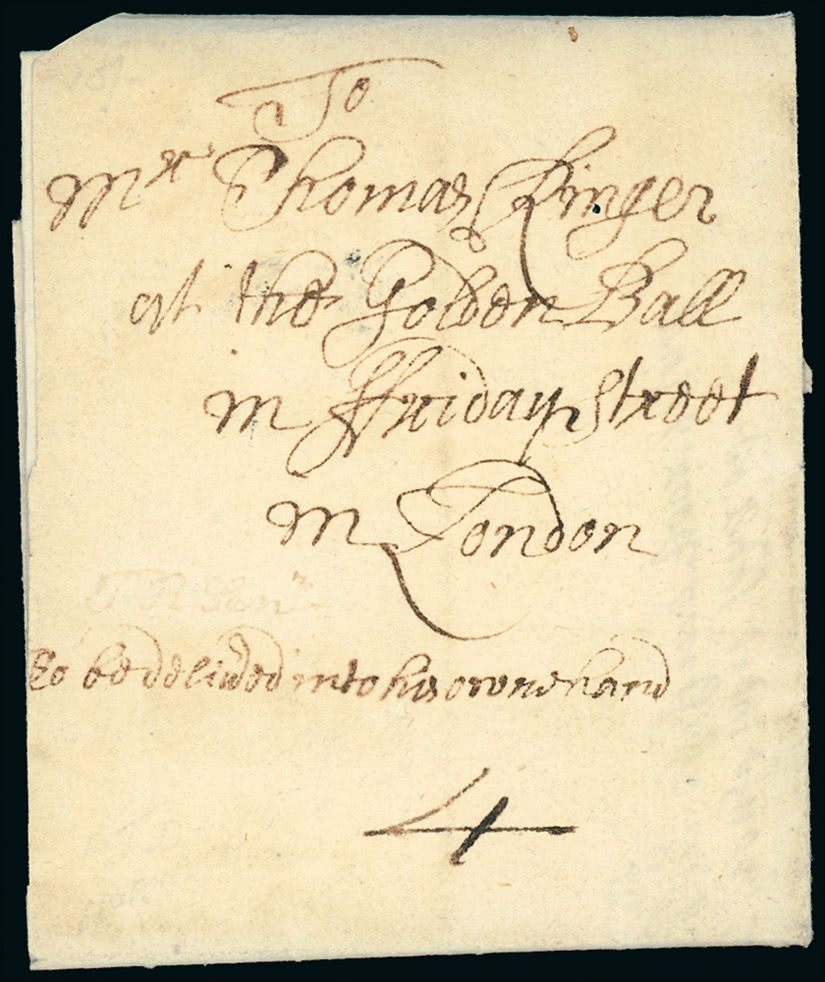 To
Mr Thomas Ringer
att the Golden Ball
in ffriday street
in London
To be delivred into his owne hand
4